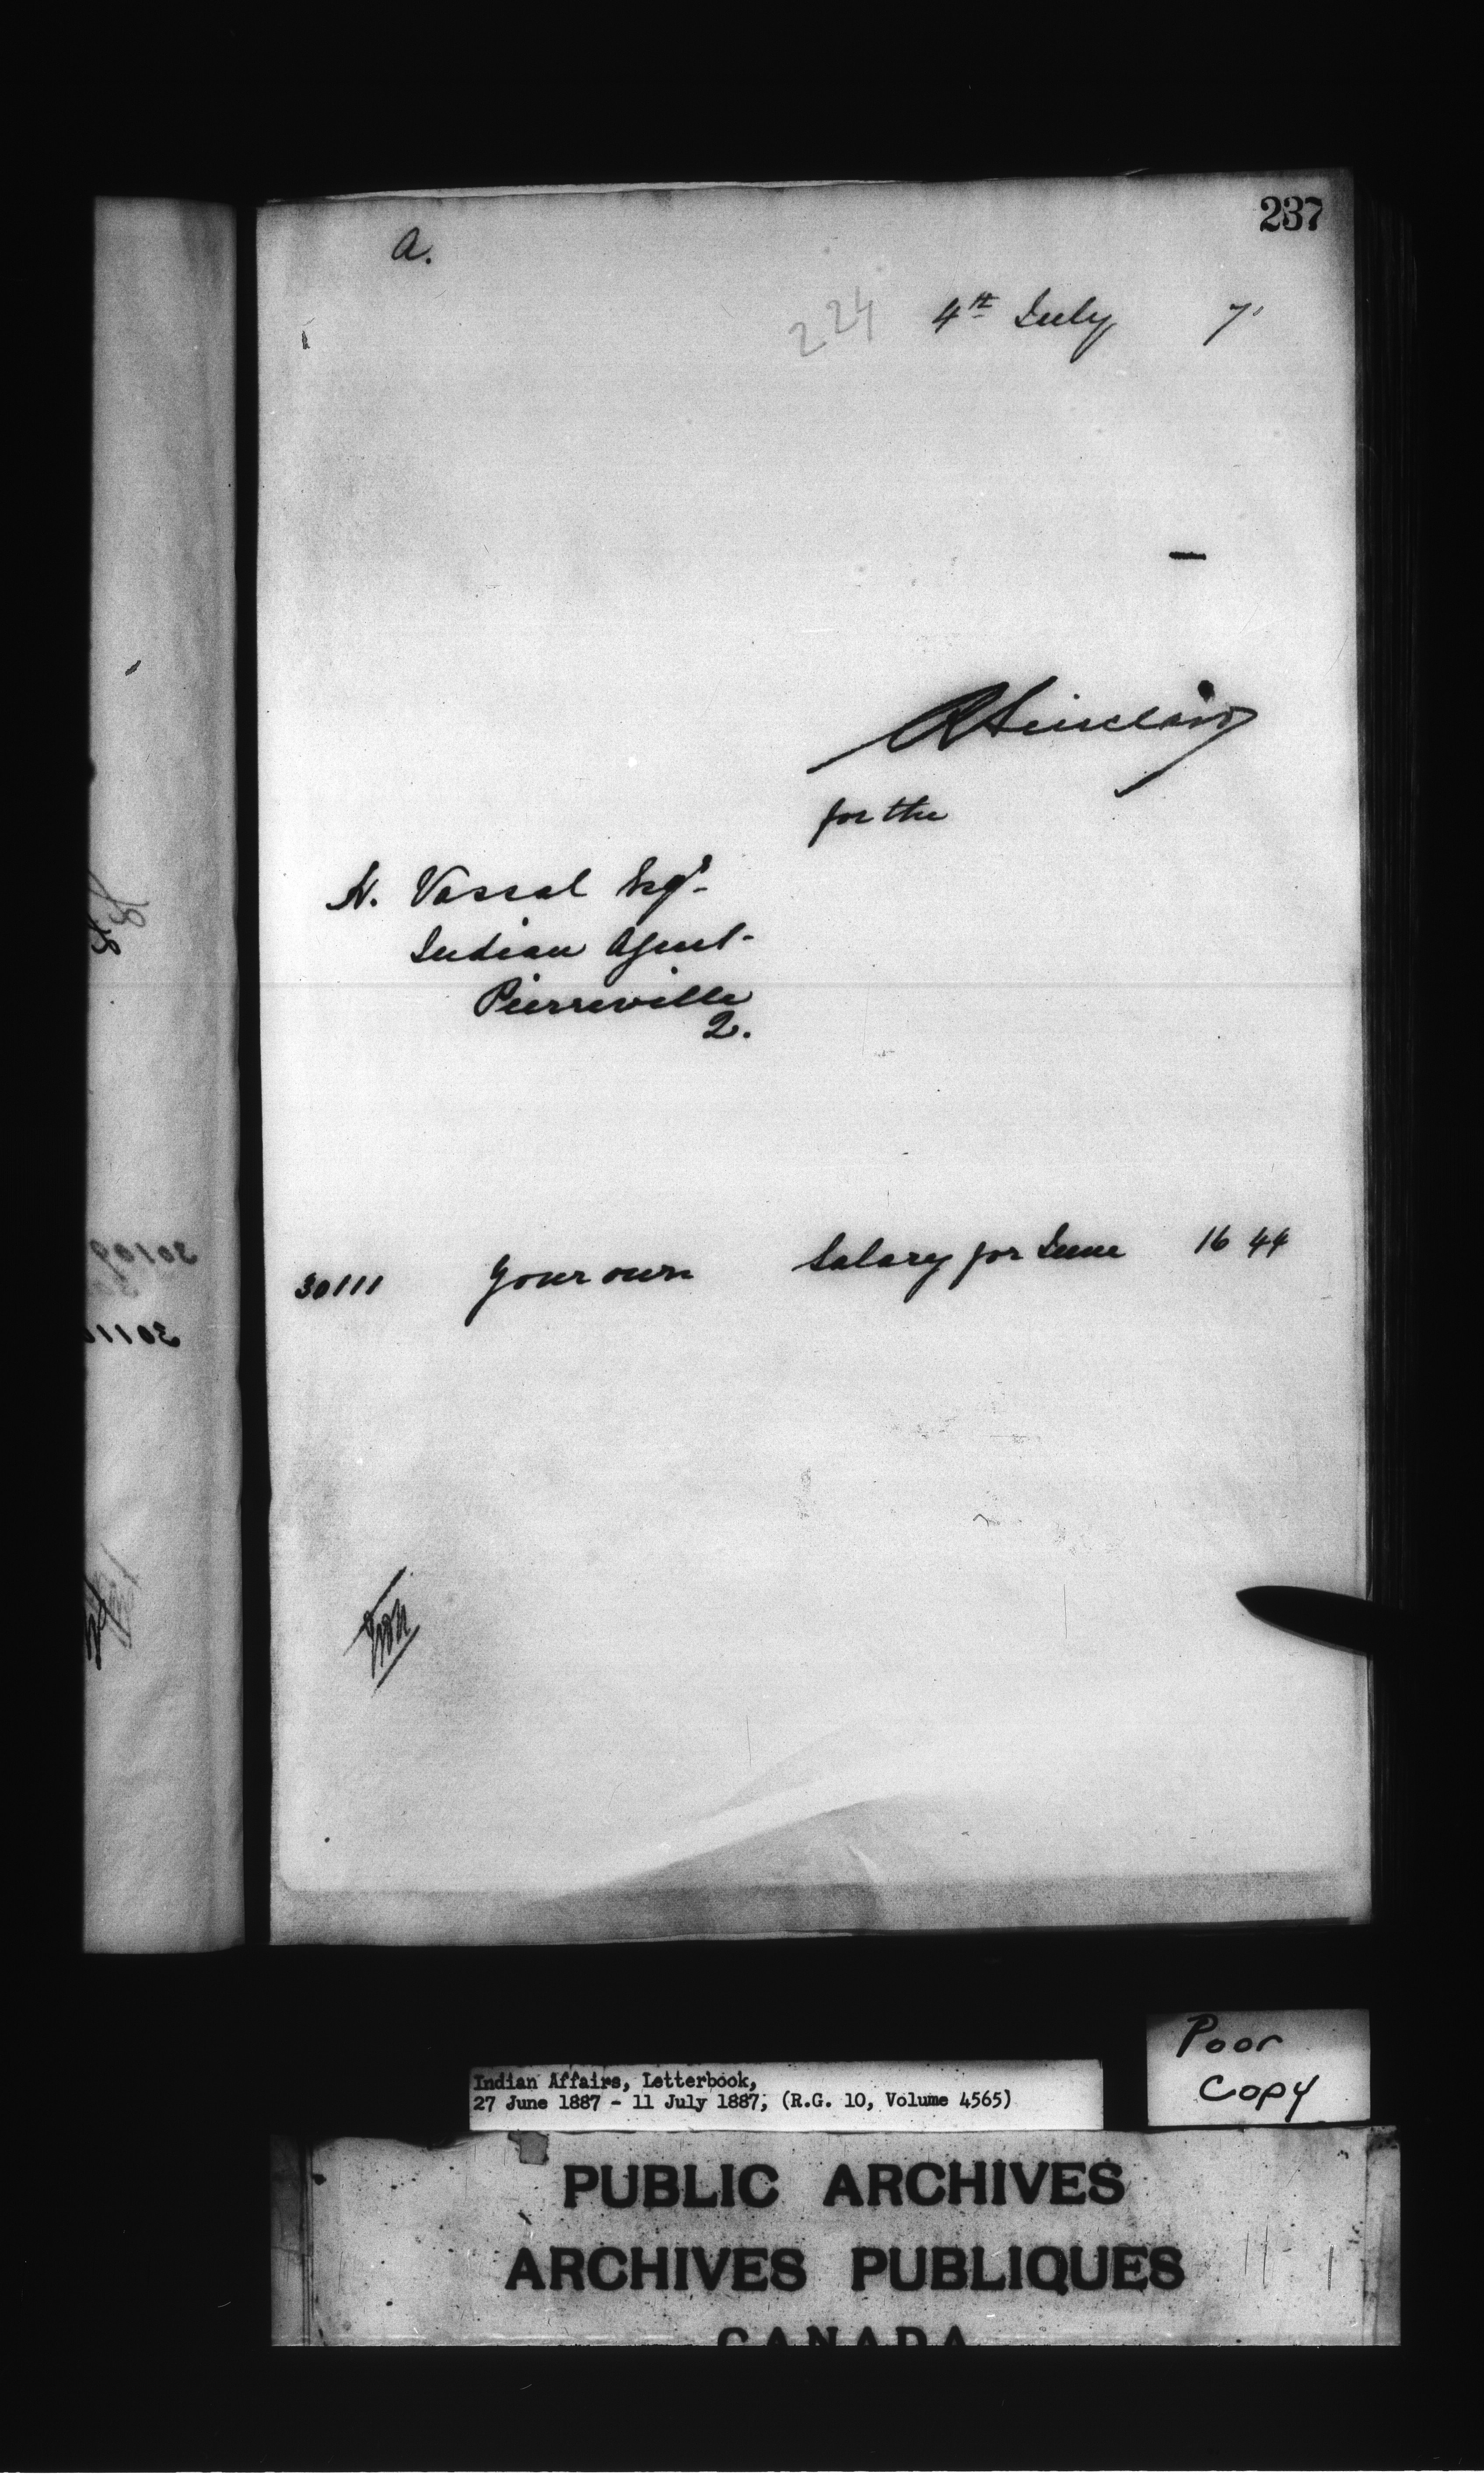 237
a.
224 4th July 7
R Sinclair
for the
H. Vassal Esqr
Indian Agent
Pierreville
2.
30111 Your own Salary for June 16 44
Indian Affairs, Letterbook,
27 June 1887 - 11 July 1887, (R.G. 10, Volume 4565)
Poor
Copy
PUBLIC ARCHIVES
ARCHIVES PUBLIQUES
CANADA